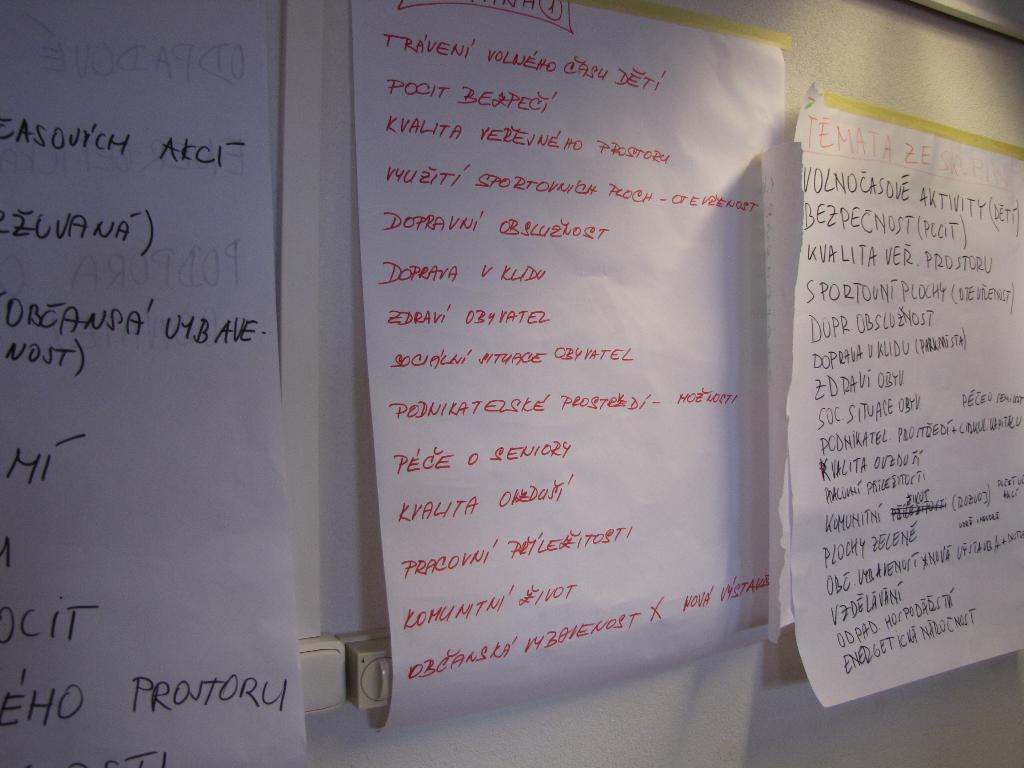 ČASOVÝCH AKCÍ
OBČANSKÁ VYBAVE-
NOST)
MÍ
OCIT
ÉHO PROSTORU
TRÁVENÍ VOLNÉHO ČASU DĚTÍ
POCIT BEZPEČÍ
KVALITA VEŘEJNÉHO PROSTORU
VYUŽITÍ SPORTOVNÍCH PLOCH - OTEVŘENOST
DOPRAVNÍ OBSLUŽNOST
DOPRAVA V KLIDU
ZDRAVÍ OBYVATEL
SOCIÁLNÍ SITUACE OBYVATEL
PODNIKATELSKÉ PROSTŘEDÍ - MOŽNOSTI
PÉČE O SENIORY
KVALITA OVZDUŠÍ
PRACOVNÍ PŘÍLEŽITOSTI
KOMUNITNÍ ŽIVOT
OBČANSKÁ VYBAVENOST X NOVÁ VÝSTAVBA
TÉMATA ZE SKUPIN
VOLNOČASOVÉ AKTIVITY (DĚTÍ)
BEZPEČNOST (POCIT)
KVALITA VEŘ. PROSTORU
SPORTOVNÍ PLOCHY (OTEVŘENOST)
DOPR OBSLUŽNOST
DOPRAVA V KLIDU (PARK. MÍSTA)
ZDRAVÍ OBYV
SOC SITUACE OBYV PÉČE O SENIORY
PODNIKATEL. PROSTŘEDÍ + CIRKUL KAPITÁLU
KVALITA OVZDUŠÍ
PRACOVNÍ PŘÍLEŽITOSTI
KOMUNITNÍ ŽIVOT (ROZVOJ)
PLOCHY ZELENĚ
OBČ. VYBAVENOST X NOVÁ VÝSTAVBA
VZDĚLÁVÁNÍ
ODPAD. HOSPODÁŘSTVÍ
ENERGETICKÁ NÁROČNOST